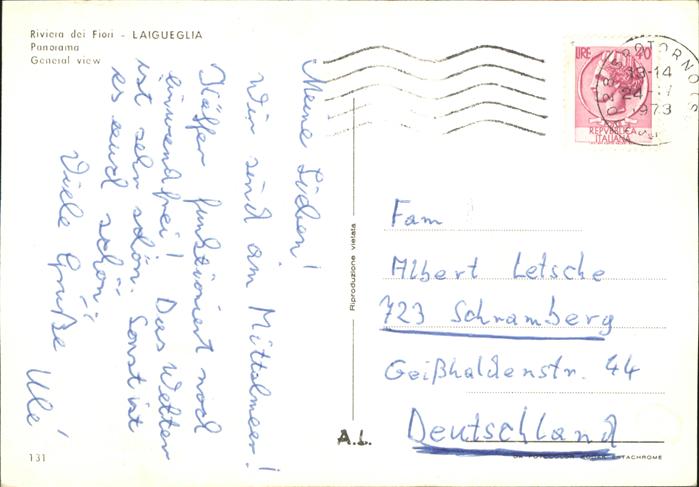 Riviera dei Fiori - LAIGUEGLIA
Panorama
General view
Meine Lieben!
Wir sind am Mittelmeer!
Käffer funktioniert noch
einwandfrei! Das Wetter
ist sehr schön. Sonst ist
es auch schön!
Viele Grüße Ulé
131
Riproduzione vietata
A.L.
LIRE 40
REPVBBLICA
ITALIANA
13-14
24
1973
Fam
Albert Letsche
723 Schramberg
Geißhaldenstr. 44
Deutschland